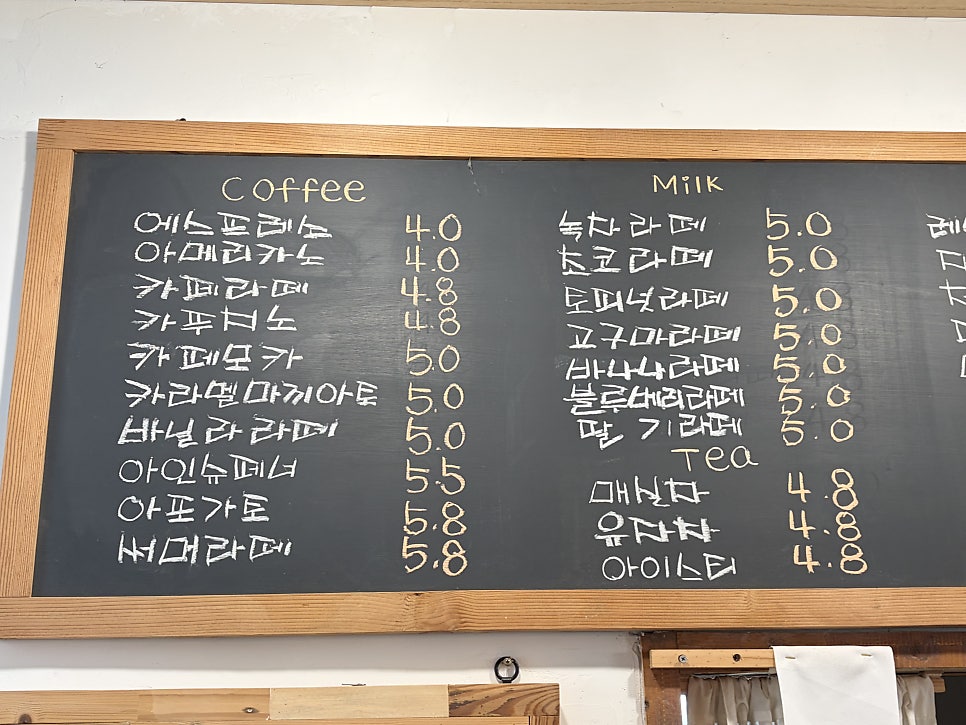 Coffee
에스프레소 4.0
아메리카노 4.0
카페라떼 4.8
카푸치노 4.8
카페모카 5.0
카라멜마끼아또 5.0
바닐라라떼 5.0
아인슈페너 5.5
아포가토 5.8
써머라떼 5.8
Milk
녹차라떼 5.0
초코라떼 5.0
토피넛라떼 5.0
고구마라떼 5.0
바나나라떼 5.0
블루베리라떼 5.0
딸기라떼 5.0
Tea
매실차 4.8
유자차 4.8
아이스티 4.8
레